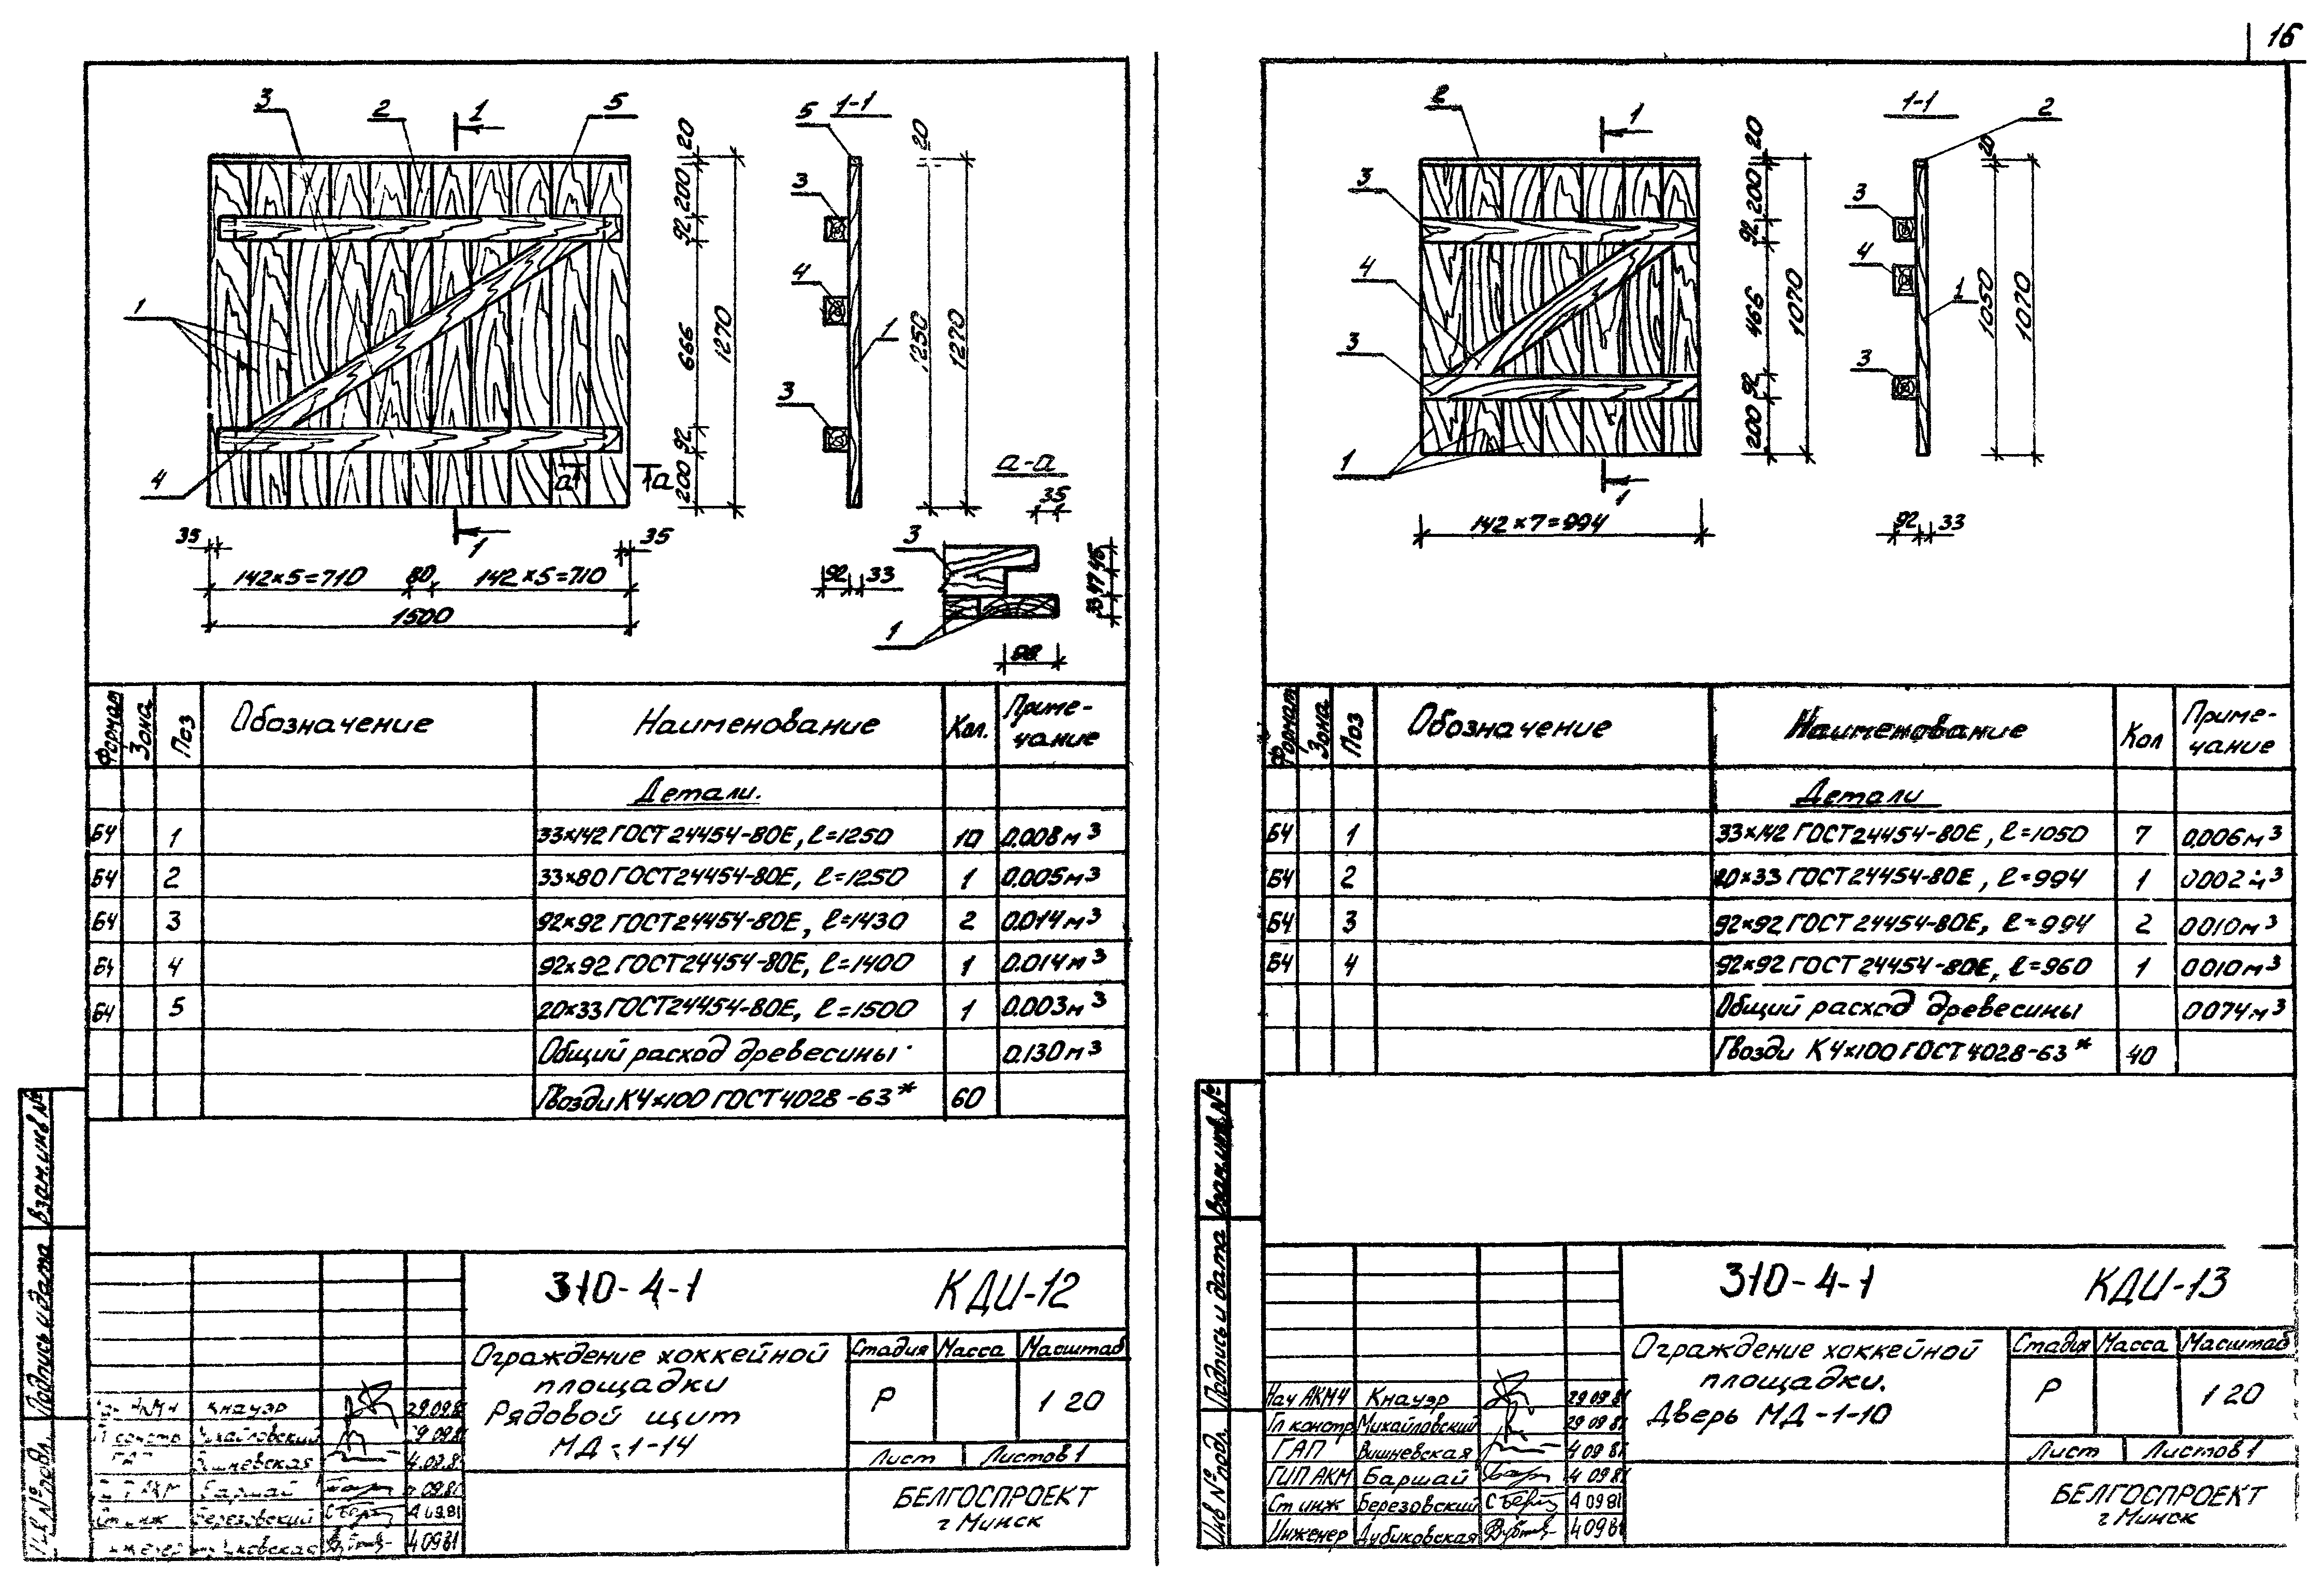 16
3
2
1
5
1
4
1
20
200
92
666
92
200
1270
а
а
35
35
142×5=710
80
142×5=710
1500
1-1
5
3
4
1
3
20
1250
1270
92
33
а-а
35
3
1
45
47
33
98
Формат
Зона
Поз
Обозначение
Наименование
Кол.
Приме-
чание
Детали.
БЧ 1 33×142 ГОСТ 24454-80Е, ℓ=1250 10 0.008м³
БЧ 2 33×80 ГОСТ 24454-80Е, ℓ=1250 1 0.005м³
БЧ 3 92×92 ГОСТ 24454-80Е, ℓ=1430 2 0.014м³
БЧ 4 92×92 ГОСТ 24454-80Е, ℓ=1400 1 0.014м³
БЧ 5 20×33 ГОСТ 24454-80Е, ℓ=1500 1 0.003м³
Общий расход древесины 0.130м³
Гвозди К4×100 ГОСТ 4028-63* 60
Взам.инв №
Подпись и дата
Инв № подл.
310-4-1 КДИ-12
Ограждение хоккейной
площадки
Рядовой щит
МД-1-14
Стадия Масса Масштаб
Р 1 20
Лист Листов 1
БЕЛГОСПРОЕКТ
г Минск
Кнауэр
Вишневская
Баршай
Ст инж Березовский 4 0981
4 0981
2
1
3
4
3
1
1
20
200
92
466
92
200
1070
142×7=994
1-1
2
3
4
1
3
20
1050
1070
92
33
Формат
Зона
Поз
Обозначение
Наименование
Кол
Приме-
чание
Детали
БЧ 1 33×142 ГОСТ 24454-80Е, ℓ=1050 7 0,006м³
БЧ 2 20×33 ГОСТ 24454-80Е, ℓ=994 1 0002м³
БЧ 3 92×92 ГОСТ 24454-80Е, ℓ=994 2 0010м³
БЧ 4 92×92 ГОСТ 24454-80Е, ℓ=960 1 0010м³
Общий расход древесины 0074м³
Гвозди К4×100 ГОСТ 4028-63* 40
Взам.инв.№
Подпись и дата
Инв № подл.
310-4-1 КДИ-13
Ограждение хоккейной
площадки.
Дверь МД-1-10
Стадия Масса Масштаб
Р 1 20
Лист Листов 1
БЕЛГОСПРОЕКТ
г Минск
Нач АКМЧ Кнауэр 29 09 81
Гл констр Михайловский 29 09 81
ГАП Вишневская 4 09 81
ГИП АКМ Баршай 4 09 81
Ст инж Березовский 4 0981
Инженер Дубиковская 4 0981